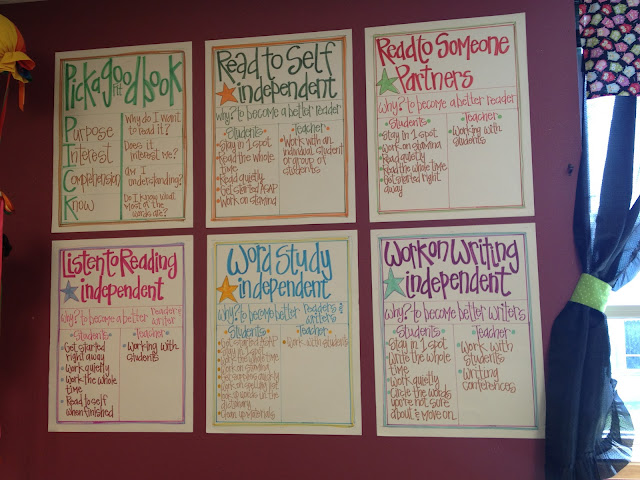 Pick a good fit book
Purpose
Interest
Comprehension
Know
Why do I want
to read it?
Does it
interest me?
Am I
understanding?
Do I know what
most of the
words are?
Read to Self
independent
why? to become a better reader
Students
Stay in 1 spot
Read the whole
time
Read quietly
Get started ASAP
Work on stamina
Teacher
Work with an
individual student
or group of
students
Read to Someone
Partners
why? to become a better reader
Students
Stay in 1 spot
Work on stamina
Read quietly
Read the whole time
Get started right
away
Teacher
Working with
students
Listen to Reading
independent
why? to become a better reader &
writer
Students
Get started
right away
Work quietly
Work the whole
time
Read to self
when finished
Teacher
Working with
students
Word Study
independent
why? to become better Readers &
writers
Students
Get started ASAP
Stay in 1 spot
Work the whole time
Work on stamina
Work on spelling list
look up words in the
dictionary
Clean up materials
Teacher
Work with students
Work on Writing
independent
why? to become better writers
Students
Stay in 1 spot
Write the whole
time
Work quietly
Circle the words
you're not sure
about & move on.
Teacher
Work with
students
Writing
conferences